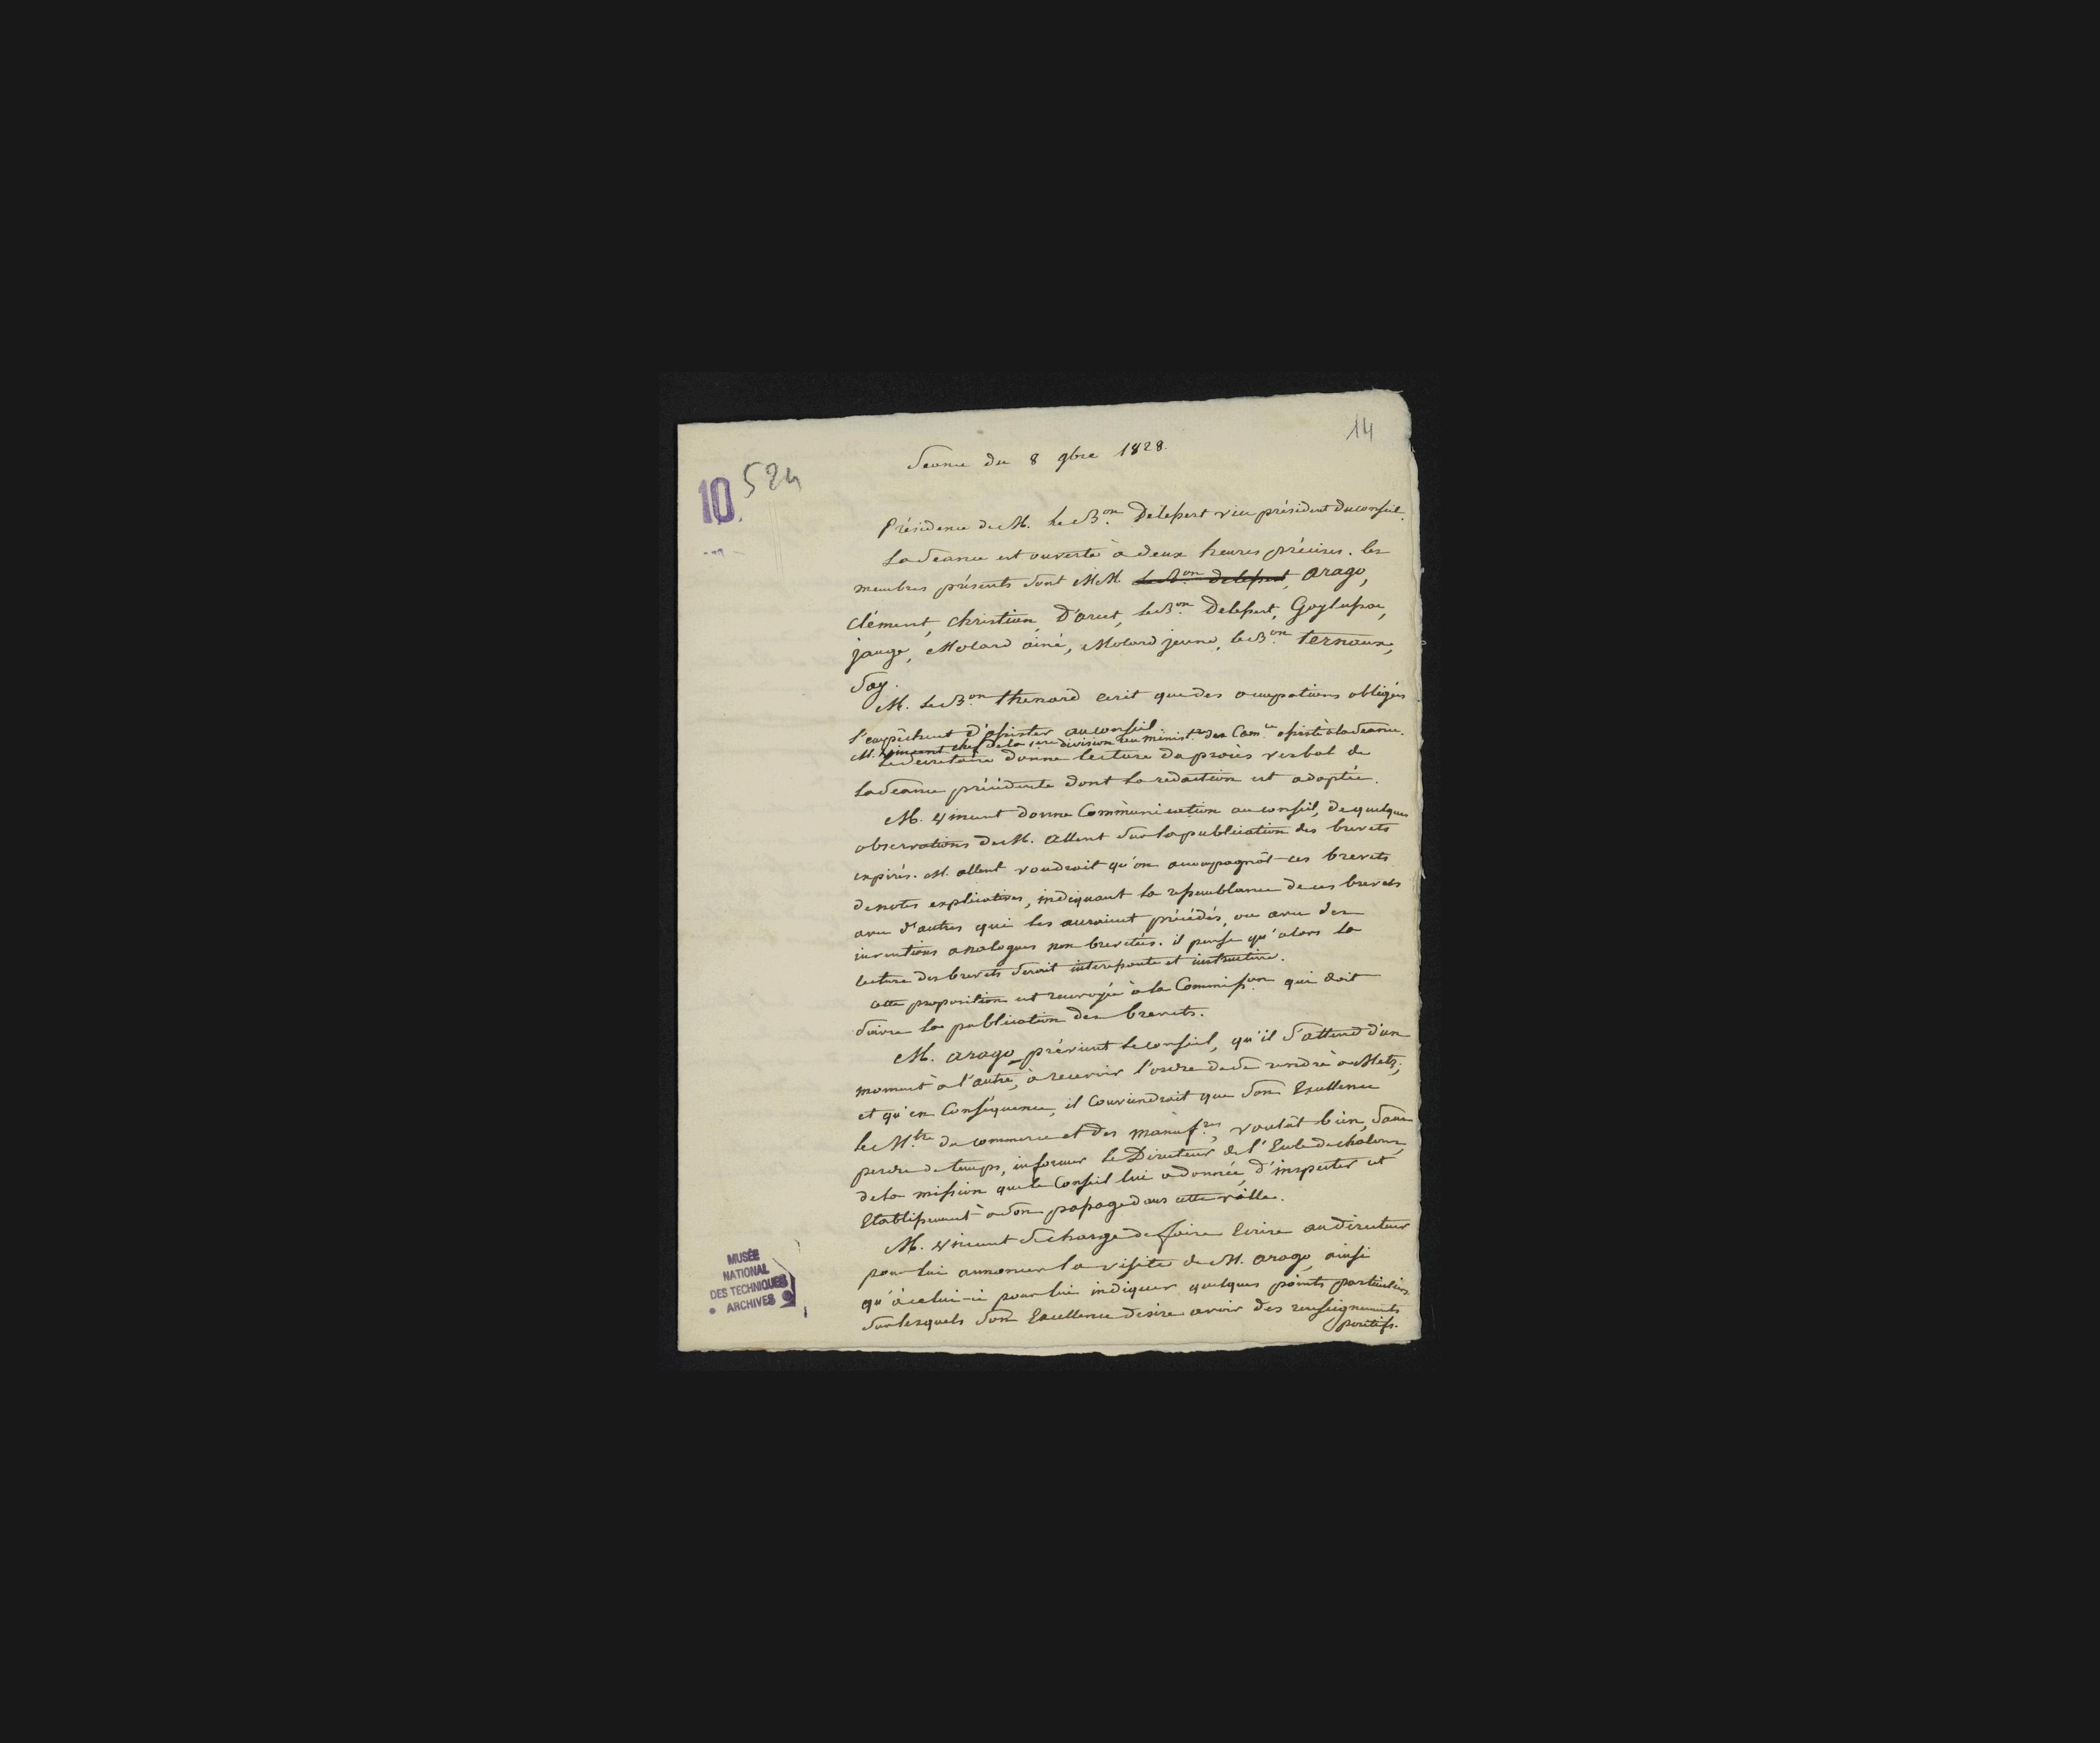 14
10.
524
Seance du 8 9bre 1828.
Présidence de M. le Bon. Delessert vice président du conseil.
La Séance est ouverte à deux heures précises. les
membres présents sont MM. le Bon. delessert, Arago,
Clément, Christian, D'arcet, le Bon. Delessert, Gaylussac,
jauge, Molard ainé, Molard jeune, le Bon. Ternaux,
Say.
M. le Bon. thenard écrit que des occupations obligées
l'empêchent d'assister au conseil.
M. Vincent chef de la 1ere division au minist.re du Com.ce assiste à la Séance.
Le Secretaire donne lecture du procès verbal de
la Séance précédente dont la redaction est adoptée.
M. Vincent donne Communication au conseil, de quelques
observations de M. Allent Sur la publication des brevets
expirés. M. allent voudrait qu'on accompagnât ces brevets
de notes explicatives, indiquant la ressemblance de ces brevets
avec d'autres qui les auraient précédés, ou avec des
inventions analogues non brevetées. il pense qu'alors la
lecture des brevets Serait interessante et instructive.
cette proposition est renvoyée à la Commission qui doit
Suivre la publication des brevets.
M. arago prévient le conseil, qu'il S'attend d'un
moment à l'autre, à recevoir l'ordre de Se rendre à Metz;
et qu'en Conséquence, il Conviendrait que Son Excellence
le M.tre du commerce et des manuf.res, voulût bien, Sans
perdre de temps, informer le Directeur de l'Ecole de chalons,
de la mission que le Conseil lui a donnée, d'inspecter cet
Etablissement à Son passage dans cette ville.
M. Vincent Se charge de faire Ecrire au directeur
pour lui annoncer la visite de M. arago, ainsi
qu'à celui-ci pour lui indiquer quelques points particuliers
Sur lesquels Son Excellence desire avoir des renseignements
positifs.
MUSÉE
NATIONAL
DES TECHNIQUES
• ARCHIVES •